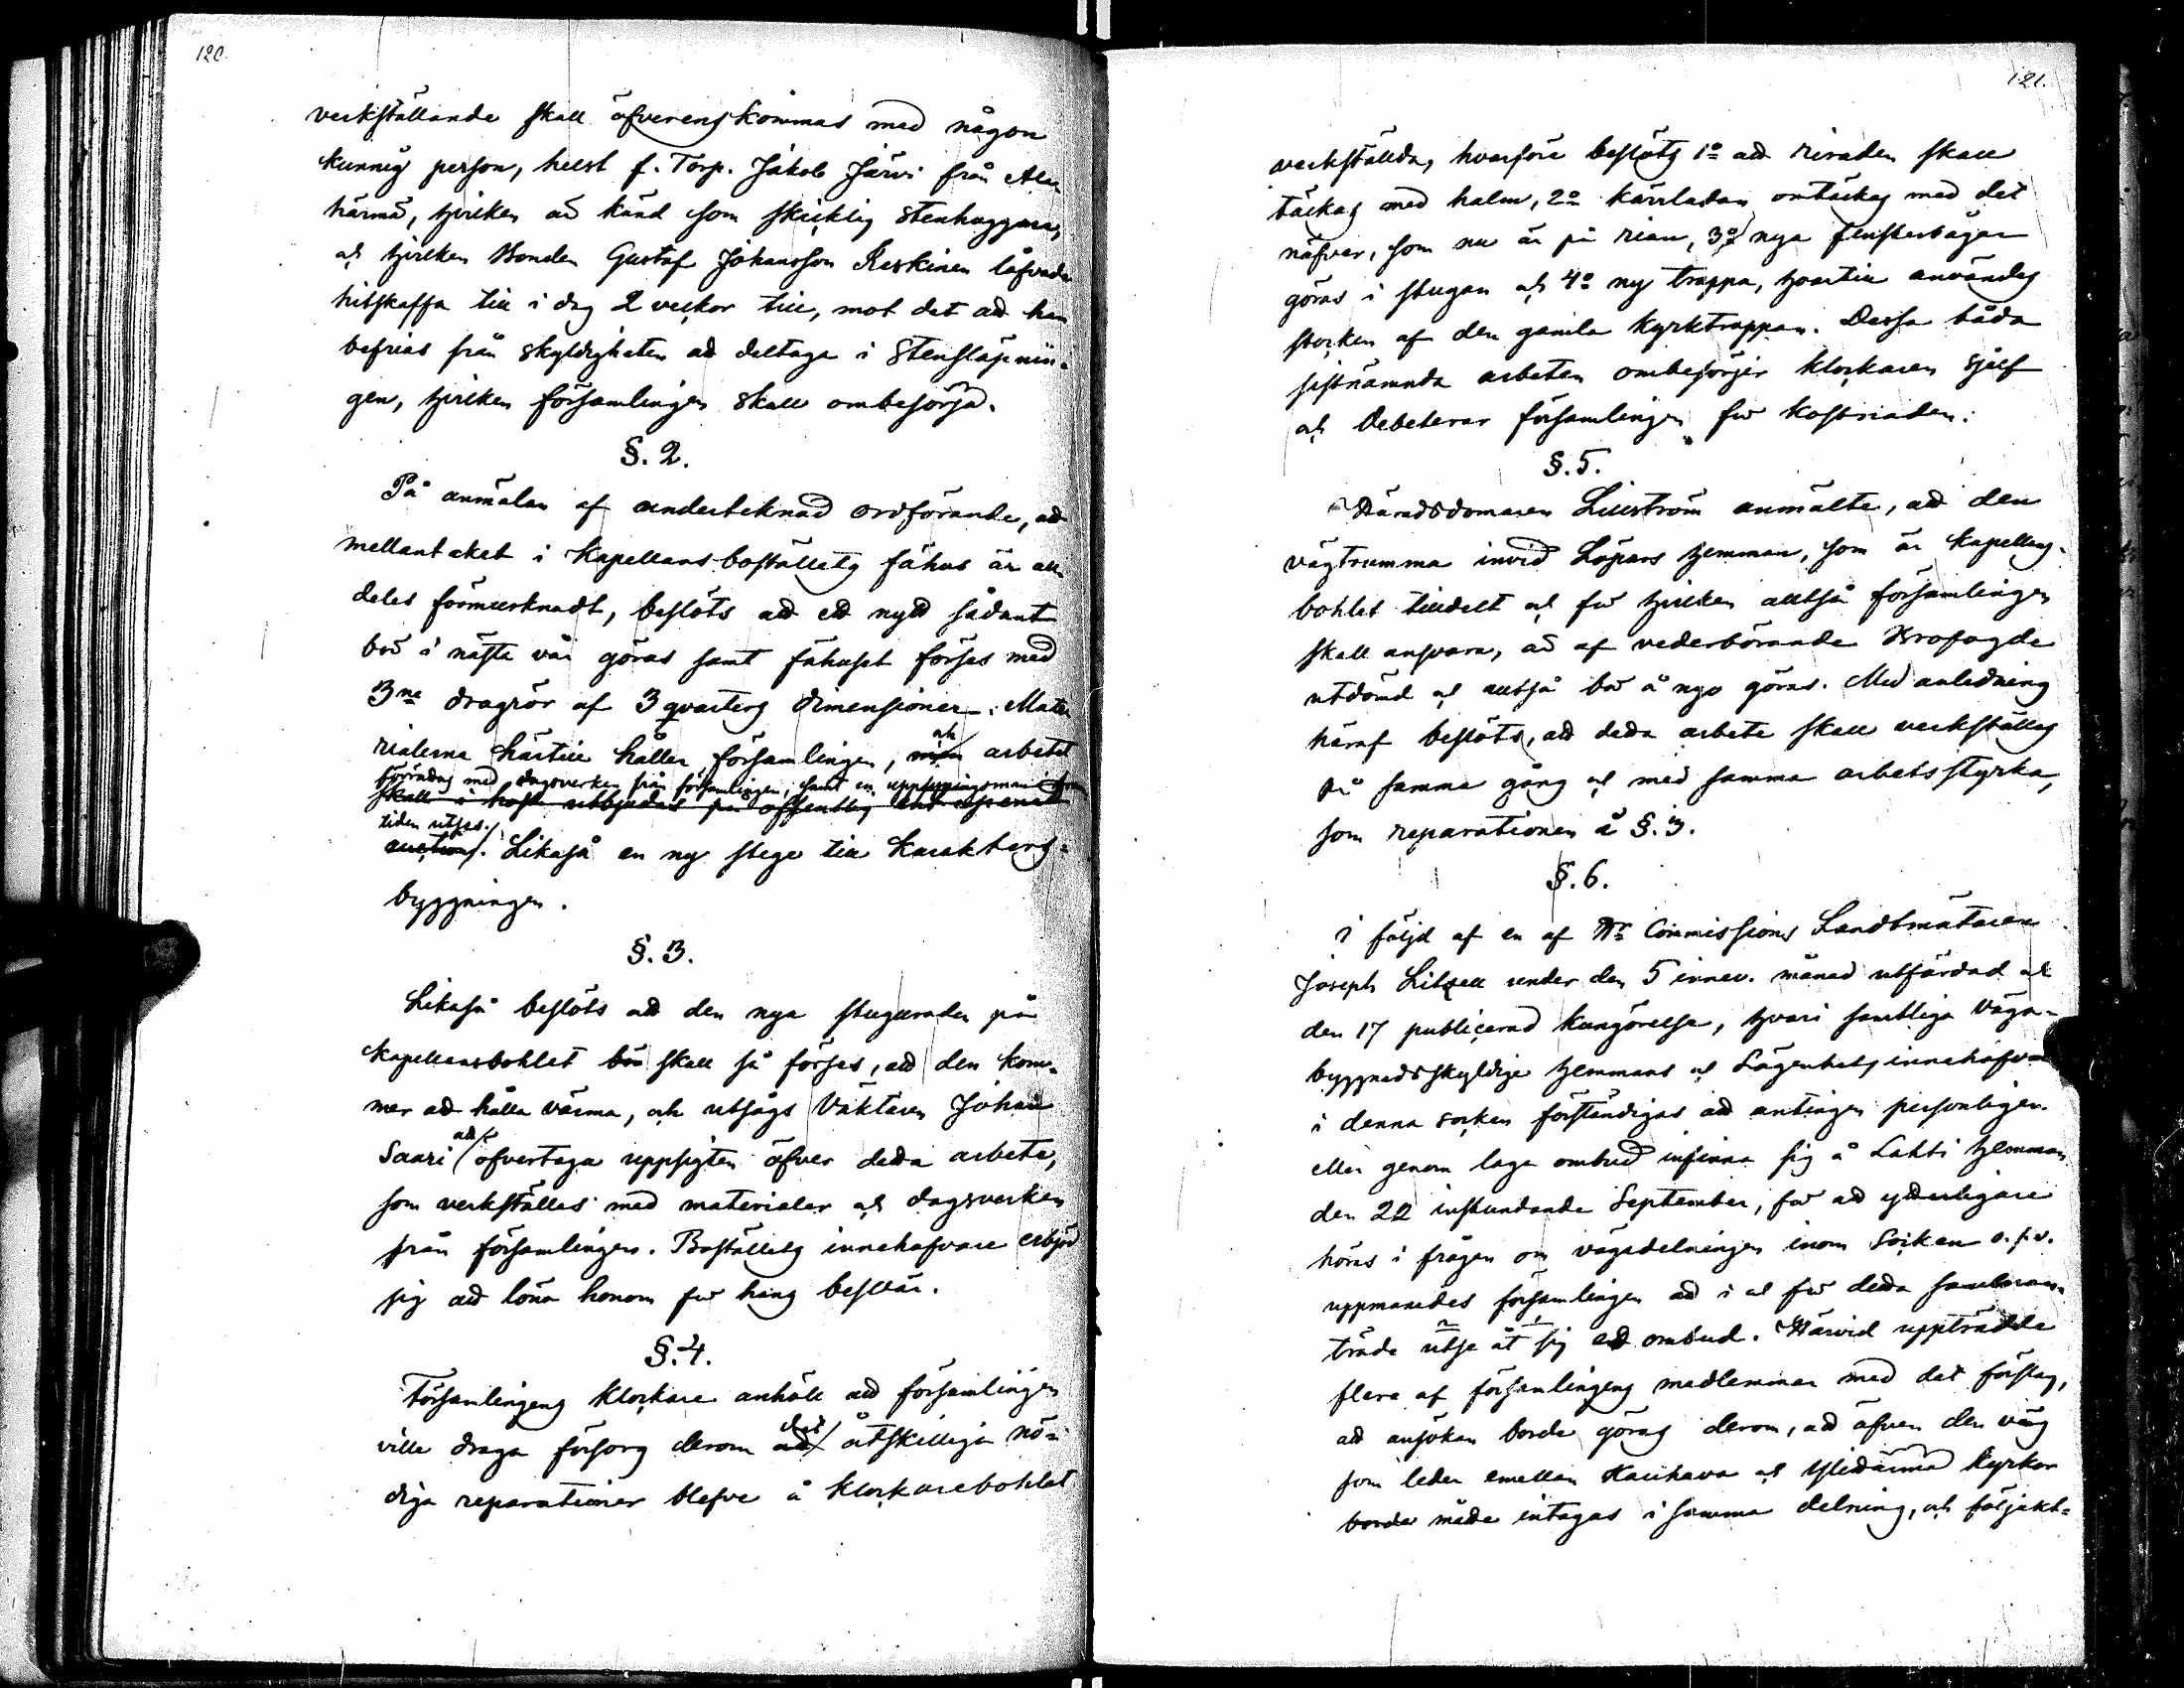 120.
verkställande skall öfverenskommas med någon
kunnig person, helst f. Torp. Jakob Järvi från Ala
härmä, hvilken är känd som skicklig stenhuggare,
och hvilken Bonden Gustaf Johansson Keskinen låfvade
hitskaffa till i dag 2 veckor till, mot det att han
befrias från skyldigheten att deltaga i stensläpnin-
gen, hvilken församlingen skall ombesörja.
§. 2.
På anmälan af undertecknad ordförande, att
mellantaket i Kapellansboställets fähus är all-
deles förmurknadt, beslöts att ett nytt sådant
bör i nästa vår göras samt fähuset förses med
3ne dragrör af 3 qvarters dimensioner. Mate
rialerna härtill håller församlingen, men och arbetet
förrättas med dagsverken från församlingen, samt en uppsyningsman som
skall i höst utbjudas på offentlig entreprenad
tiden utses.
auction. Likaså en ny stege till Karaktersbyggningen.
§. 3.
Likaså beslöts att den nya stuguraden på
Kapellansbohlet bör skall så förses, att den kom-
mer att hålla värma, och utsågs Väktaren Johan
Saari att öfvertaga uppsigten öfver detta arbete,
som verkställes med materialer och dagsverken
från församlingen. Boställets innehafvare erbjöd
sig att löna honom för hans besvär.
§. 4.
Församlingens klockare anhöll att församlingen
ville draga försorg derom att det åtskilliga nö-
diga reparationer blefve å klockarebohlet
121.
verkställda, hvarföre beslöts 1o att riraden skall
täckas med halm, 2o kärrladan omtäckas med det
näfver, som nu är på rian, 3o nya fensterbågar
göras i stugan och 4o ny trappa, hvartill användes
stocken af den gamla kyrktrappan. Dessa båda
sistnämnda arbeten ombesörjer klockaren sjelf
och debeterar församlingen för kostnaden.
§. 5.
Häradsdomaren Lillström anmälte, att den
vägtrumma invid Löpars hemman, som är Kapellans-
bohlet tilldelt och för hvilken alltså församlingen
skall ansvara, är af vederbörande Brofogde
utdömd och alltså bör å nyo göras. Med anledning
häraf beslöts, att detta arbete skall verkställas
på samma gång och med samma arbetsstyrka,
som reparationen å §. 3.
§. 6.
I följd af en af Hr Commissions Landtmätaren
Joseph Litzell under den 5 innev. månad utfärdad och
den 17 publicerad kungörelse, hvari samtliga väga-
byggnadsskyldige hemmans och Lägenhets innehafvare
i denna socken förständigas att antingen personligen
eller genom laga ombud infinna sig å Lahti hemman
den 22 instundande September, för att ytterligare
höras i frågan om vägadelningen inom Socken o.s.v.
uppmanades församlingen att i och för detta samman-
träde utse åt sig ett ombud. Härvid uppträdde
flere af församlingens medlemmar med det förslag,
att ansökan borde göras derom, att äfven den väg
som leder emellan Kauhava och Ylihärmä kyrkor
borde måtte intagas i samma delning, och följakt-